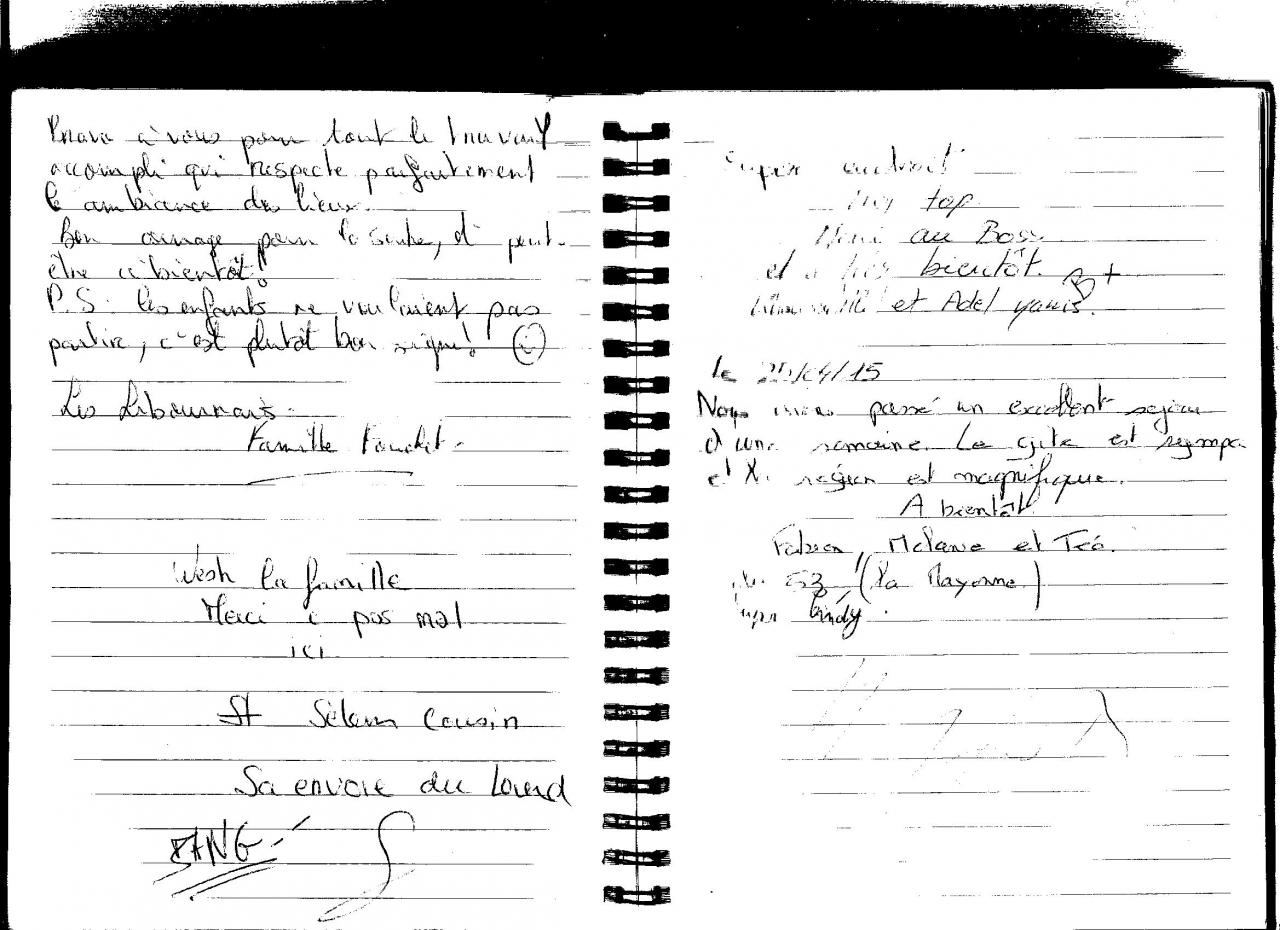 Bravo à vous pour tout le travail
accompli qui respecte parfaitement
l'ambiance des lieux.
Bon courage pour la suite, et peut-
être à bientôt!
P.S: les enfants ne voulaient pas
partir, c'est plutôt bon signe!
Les Libournais.
Famille
Wesh la famille
Merci c pas mal
ici
Sèlam Cousin
Sa envoie du lourd
BANG
Super endroit
top
au Boss
et à très bientôt. B+
et Adel yanis.
le /04/15
Nous avons passé un excellent sejour
d'une semaine. Le gite est sympa
et la région est magnifique.
A bientôt
Fabien, Mélanie et Téo.
53 (la Mayenne)
Super